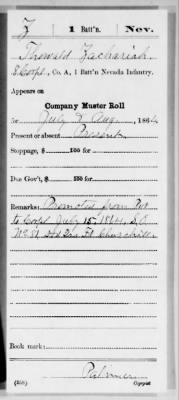 Z 1 Batt'n. Nev.
Thowald Zachariah
Corpl., Co. A, 1 Batt'n Nevada Infantry.
Appears on
Company Muster Roll
for July & Aug., 1864.
Present or absent Present
Stoppage, $ 100 for
Due Gov't, $ 100 for
Remarks: Promoted from Pvt
to Corpl July 15, 1864, S.O.
No. 51 Hd Qrs Ft Churchill
Book mark:
Palmer
(358) Copyist